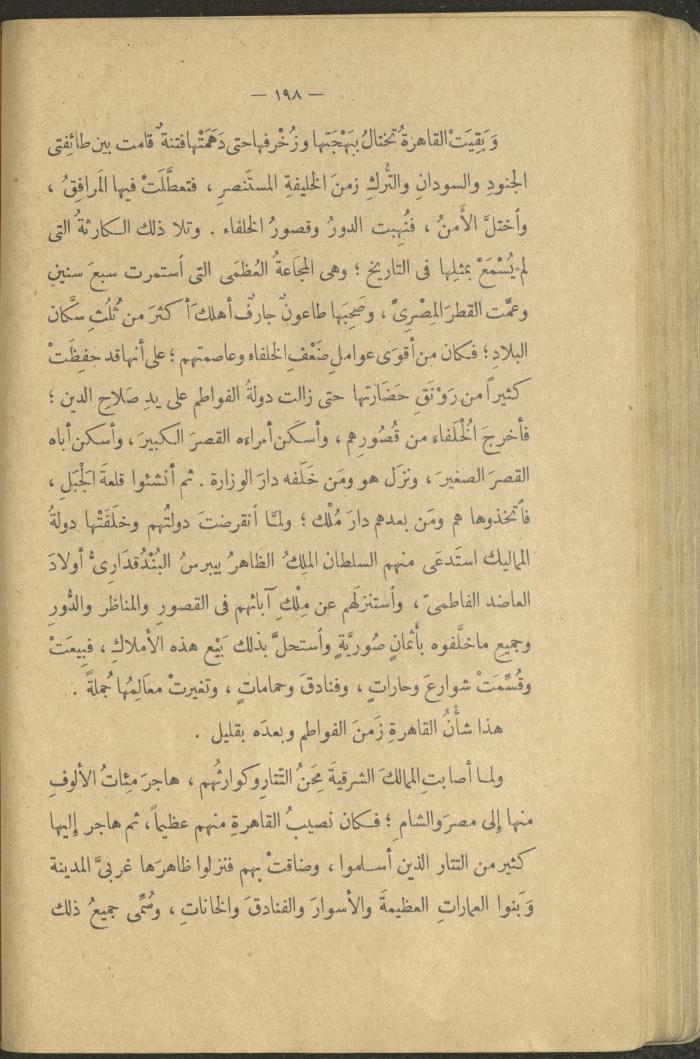 — ١٩٨ —
وَبَقِيَتْ القاهرةُ تختالُ بِبَهْجَتِها وزُخْرفِها حتى دَهَمَتْها فتنةٌ قامت بين طائِفتى
الجنودِ والسودانِ والتُّركِ زمنَ الخليفةِ المستَنصرِ ، فتعطَّلَتْ فيها المَرافِقُ ،
وٱختلَّ الأَمنُ ، فنُهِبت الدورُ وقصورُ الخلفاء . وتلا ذلك الكارثةُ التى
لم يُسْمَعْ بمثلِها فى التاريخ ؛ وهى المجَاعةُ العُظمَى التى ٱستمرت سبعَ سنينِ
وعمَّت القطرَ المِصْرىَّ ، وصَحِبَها طاعونٌ جارفٌ أهلكَ أكثرَ من ثُلُثِ سكَّان
البلادِ ؛ فكان من أقوَى عواملِ ضَعْفِ الخلفاءِ وعاصمتهم ؛ على أنها قد حفِظَتْ
كثيراً من رَوْنَقِ حَضَارتِها حتى زالت دولةُ الفواطم على يدِ صَلاحِ الدين ؛
فأخرجَ الخُلَفاءَ من قُصُورِهم ، وأسكَن أمراءه القصرَ الكبيرَ ، وأسكن أباه
القصرَ الصغيرَ ، ونزَل هو ومَن خَلَفه دارَ الوزارة . ثم أنشئوا قلعةَ الجَبَلِ ،
فٱتخذوها هم ومَن بعدهم دارَ مُلْك ؛ ولمَّا ٱنقرضتَ دولتُهم وخلَفَتْها دولةُ
المماليك استَدعَى منهم السلطان الملِكُ الظاهرُ بيبرسُ البُنْدُقدَارىُّ أولادَ
العاضد الفاطمىّ ، وٱستنزلَهم عن مِلْكِ آبائهم فى القصورِ والمناظر والدُّورِ
وجميعِ ما خلَّفوه بأَثمانٍ صُوريَّةٍ وٱستحلَّ بذلك بَيْع هذه الأملاكِ ، فبِيعَتْ
وقُسِّمَتْ شوارعَ وحاراتٍ ، وفنادقَ وحماماتٍ ، وتغيرتْ معَالِمُها جُملةً .
هذا شأْنُ القاهرةِ زَمنَ الفواطم وبعدَه بقليل .
ولما أصابتِ الممالكَ الشرقيةَ مِحَنُ التّتارِ وكوارثُهم ، هاجرَ مِئاتُ الألوفِ
منها إلى مصرَ والشامِ ؛ فكان نصيبُ القاهرةِ منهم عظيماً ، ثم هاجر إليها
كثير من التتار الذين أسلموا ، وضاقتْ بهم فنزلوا ظاهرَها غربىَّ المدينة
وَبنوا العماراتِ العظيمةَ والأسوارَ والفنادقَ والخاناتِ ، وسُمِّى جميعُ ذلك